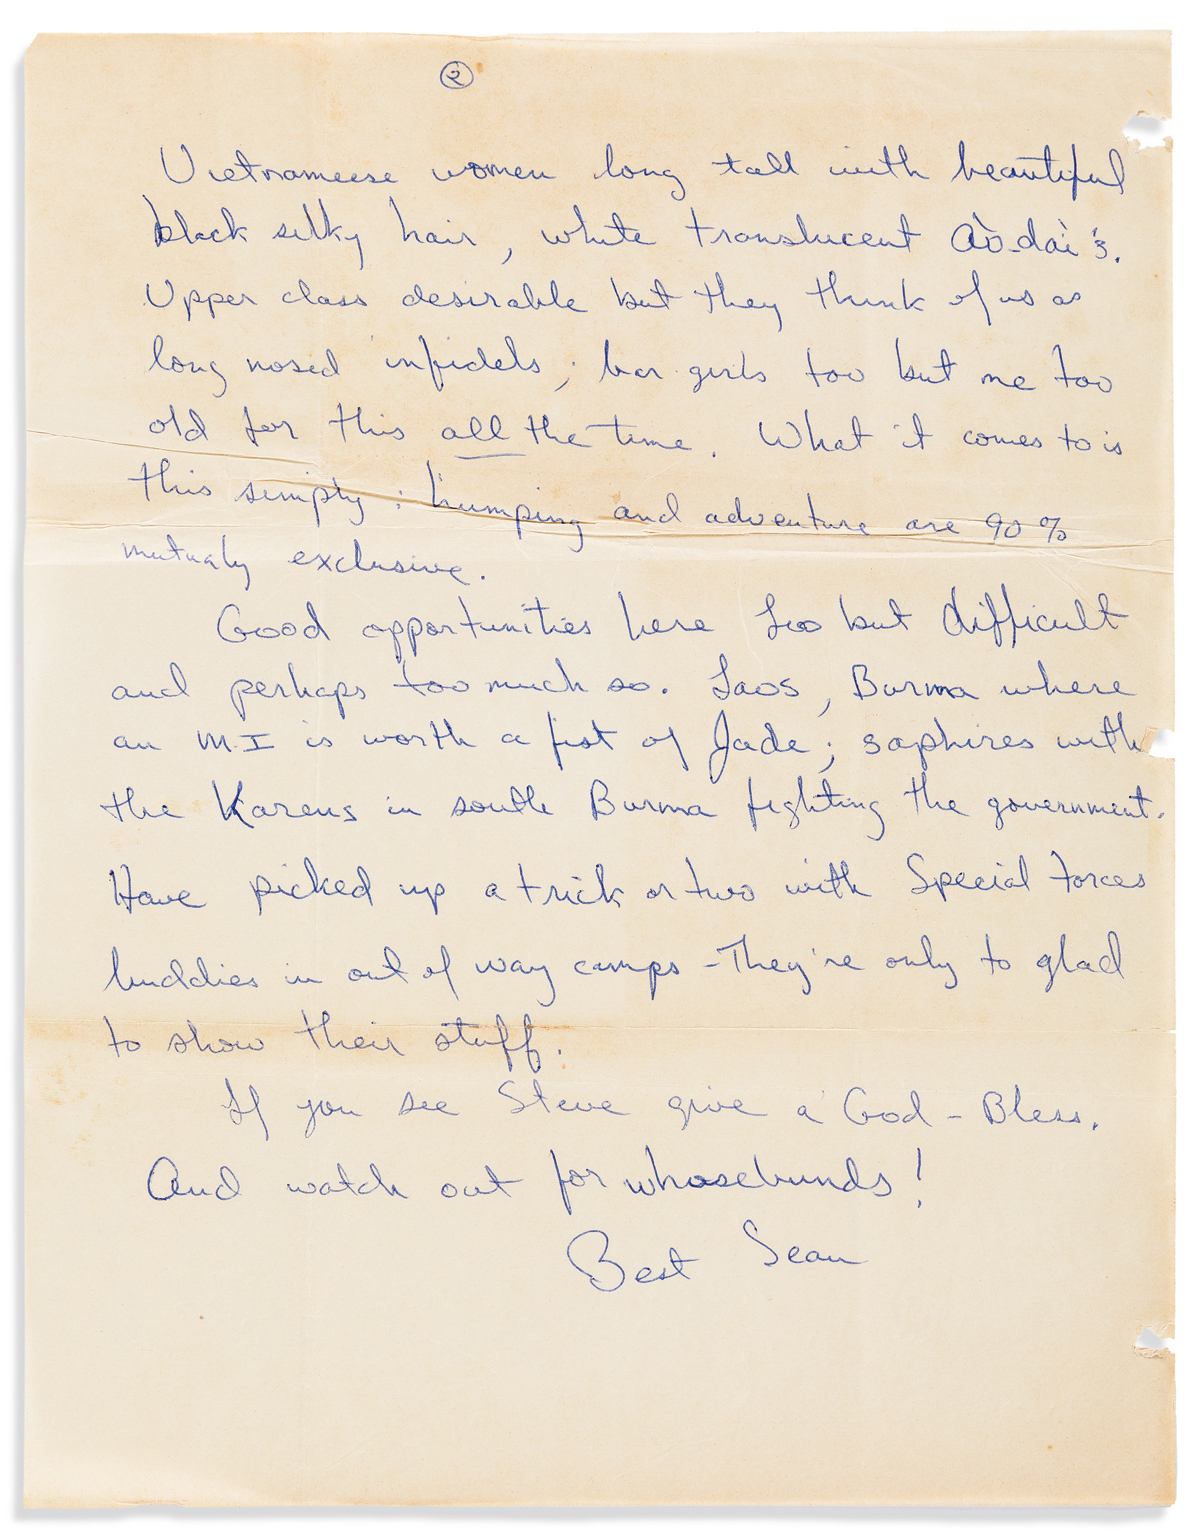 ②
Vietnameese women long tall with beautiful
black silky hair, white translucent Aò-dai's.
Upper class desirable but they think of us as
long nosed infidels; bar girls too but me too
old for this all the time. What it comes to is
this simply: humping and adventure are 90%
mutualy exclusive.
Good opportunities here too but difficult
and perhaps too much so. Laos, Burma where
an M.I is worth a fist of Jade; saphires with
the Karens in south Burma fighting the government.
Have picked up a trick or two with Special Forces
buddies in out of way camps - They're only to glad
to show their stuff.
If you see Steve give a God-Bless.
And watch out for whosebunds!
Best Sean